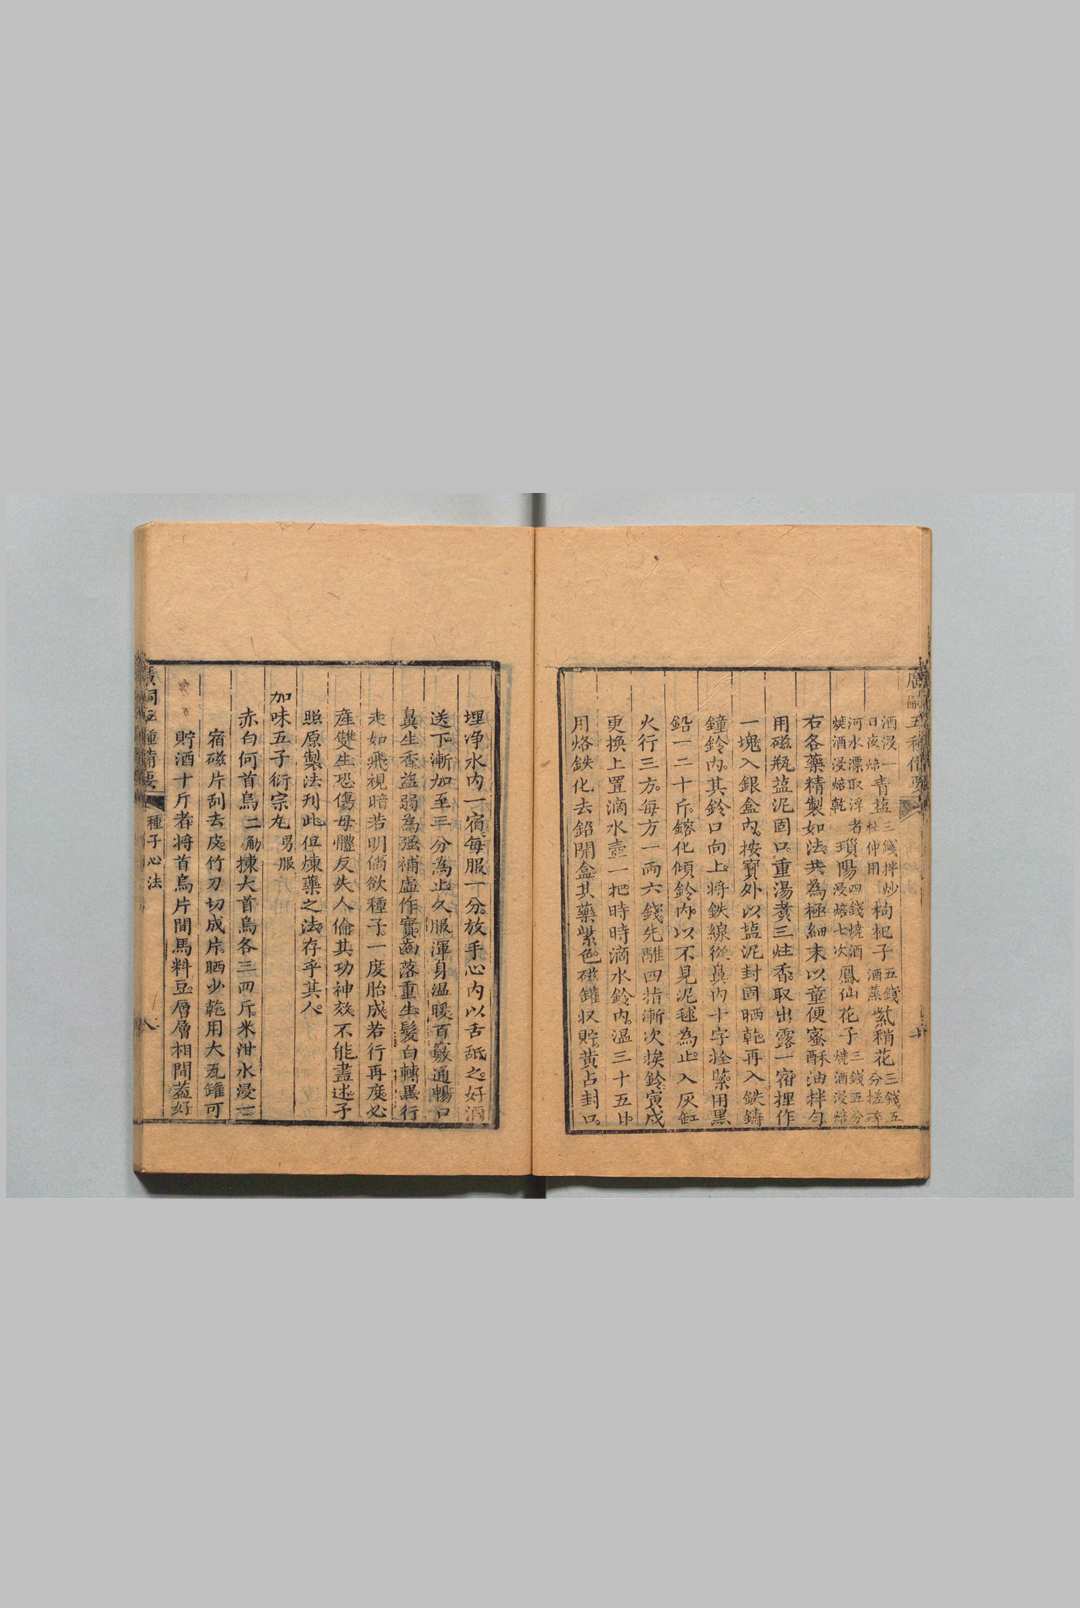 酒浸一
日夜焙
青塩三錢拌炒
杜仲用
枸杞子五錢
酒蒸
紫稍花三錢五
河水漂取浮者
燒酒浸焙乾
瑣陽四錢燒酒
浸焙七次
鳳仙花子三錢五分
燒酒浸焙
右各藥精製如法共為極細末以童便蜜酥油拌勻
用磁瓶盐泥固口重湯煮三炷香取出露一宿捏作
一塊入銀盒內按實外以塩泥封固晒乾再入鉄鑄
鐘鈴內其鈴口向上將鉄線從鼻內十字拴縈用黑
鉛一二十斤鎔化傾鈴內以不見泥毬為止入灰缸
火行三方每方一兩六錢先離四指漸次挨鈴寅戌
更換上置滴水壺一把時時滴水鈴內溫三十五日
用烙鉄化去鉛開盒其藥紫色磁罐収貯黃占封口
埋净水內一宿每服一分放手心內以舌舐之好酒
送下漸加至三分為止久服渾身温暖百竅通暢口
鼻生香益弱為强補虛作實齒落重生髮白轉黑行
走如飛視暗若明倘欲種子一度胎成若行再度必
產雙生恐傷母體反失人倫其功神效不能盡述予
照原製法刋此但煉藥之法存乎其人
加味五子衍宗丸男服
赤白何首烏二觔揀大首烏各三四斤米泔水浸一
宿磁片刮去皮竹刀切成片晒少乾用大瓦罐可
貯酒十斤者将首烏片間馬料豆層層相間蓋好
種子心法